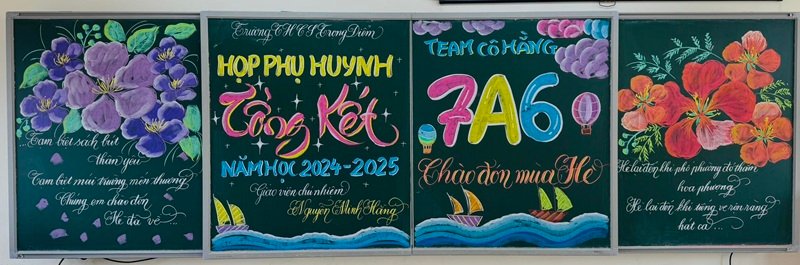 ...Tạm biệt sách bút
thân yêu
Tạm biệt mái trường mến thương
Chúng em chào đón
Hè đã về...
Trường THCS Trọng Điểm
HỌP PHỤ HUYNH
Tổng Kết
NĂM HỌC 2024-2025
Giáo viên chủ nhiệm
Nguyễn Minh Hằng
TEAM CÔ HẰNG
7A6
Chào đón mùa Hè
Hè lại đến khi phố phường đỏ thắm
hoa phượng
Hè lại đến khi tiếng ve rộn ràng
hát ca...